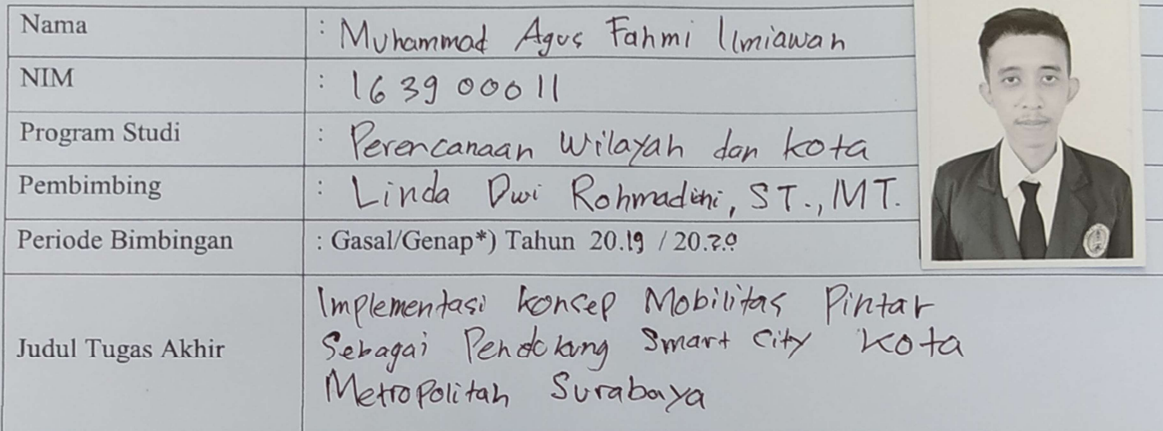 Nama : Muhammad Agus Fahmi Ilmiawan
NIM : 163900011
Program Studi : Perencanaan Wilayah dan Kota
Pembimbing : Linda Dwi Rohmadini, ST., MT.
Periode Bimbingan : Gasal/Genap*) Tahun 20.19 / 20.20
Judul Tugas Akhir
Implementasi Konsep Mobilitas Pintar
Sebagai Pendukung Smart City Kota
Metropolitan Surabaya